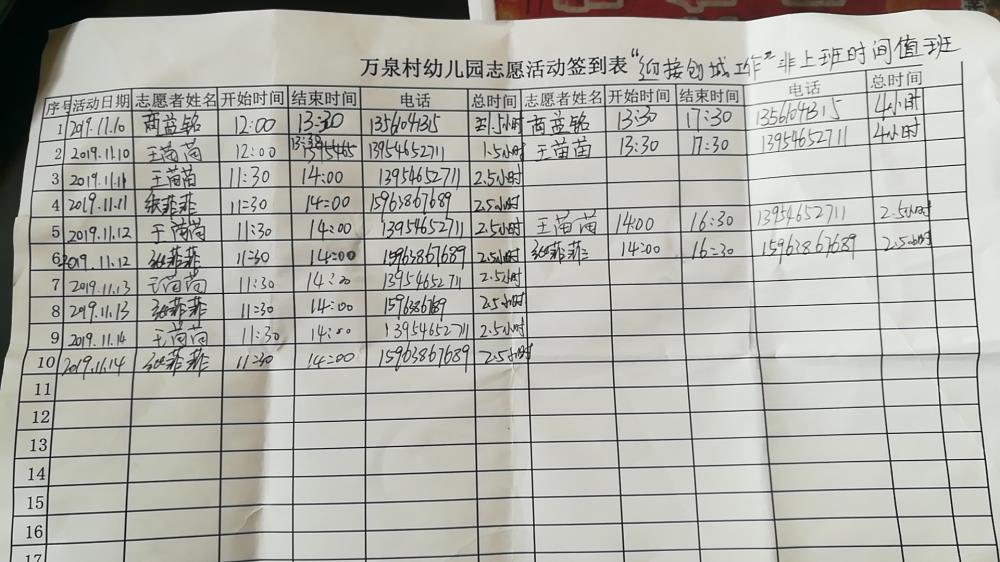 万泉村幼儿园志愿活动签到表"迎接创城工作"非上班时间值班
序号 活动日期 志愿者姓名 开始时间 结束时间 电话 总时间 志愿者姓名 开始时间 结束时间 电话 总时间
1 2019.11.10 商益铭 12:00 13:30 1356104315 1.5小时 商益铭 13:30 17:30 1356104315 4小时
2 2019.11.10 王苗苗 12:00 13:30 13954652711 1.5小时 王苗苗 13:30 17:30 13954652711 4小时
3 2019.11.11 王苗苗 11:30 14:00 13954652711 2.5小时
4 2019.11.11 张菲菲 11:30 14:00 15963867689 2.5小时
5 2019.11.12 王苗苗 11:30 14:00 13954652711 2.5小时 王苗苗 14:00 16:30 13954652711 2.5小时
6 2019.11.12 张菲菲 11:30 14:00 15963867689 2.5小时 张菲菲 14:00 16:30 15963867689 2.5小时
7 2019.11.13 王苗苗 11:30 14:00 13954652711 2.5小时
8 2019.11.13 张菲菲 11:30 14:00 2.5小时
9 2019.11.14 王苗苗 11:30 14:00 13954652711 2.5小时
10 2019.11.14 张菲菲 11:30 14:00 15963867689 2.5小时
11
12
13
14
15
16
17